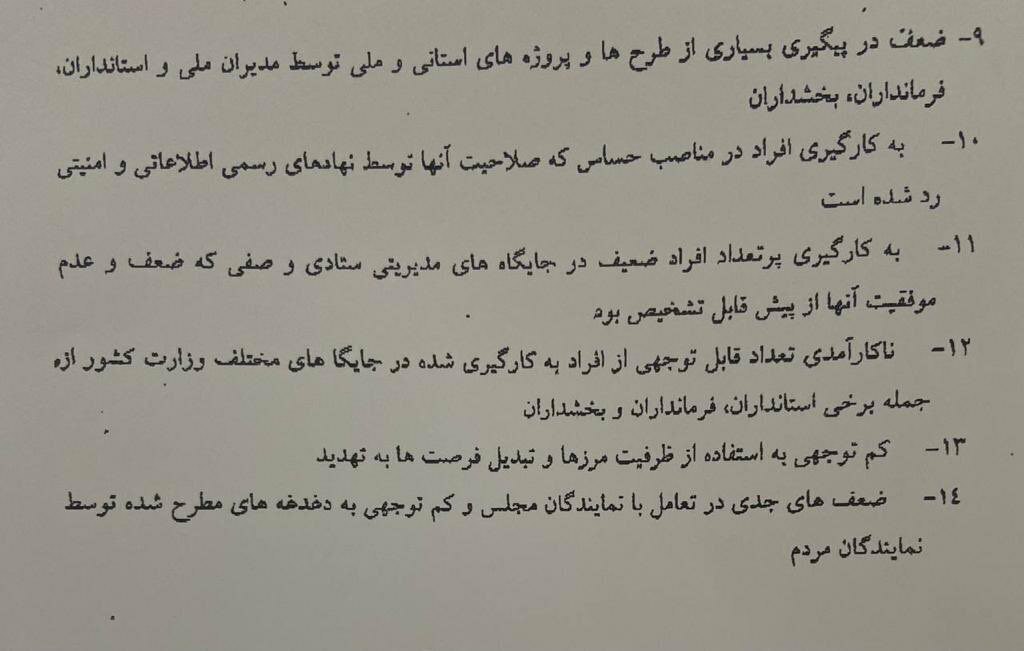 ۹- ضعف در پیگیری بسیاری از طرح ها و پروژه های استانی و ملی توسط مدیران ملی و استانداران،
فرمانداران، بخشداران
۱۰- به کارگیری افراد در مناصب حساس که صلاحیت آنها توسط نهادهای رسمی اطلاعاتی و امنیتی
رد شده است
۱۱- به کارگیری پرتعداد افراد ضعیف در جایگاه های مدیریتی ستادی و صفی که ضعف و عدم
موفقیت آنها از پیش قابل تشخیص بود
۱۲- ناکارآمدی تعداد قابل توجهی از افراد به کارگیری شده در جایگا های مختلف وزارت کشور ازه
جمله برخی استانداران، فرمانداران و بخشداران
۱۳- کم توجهی به استفاده از ظرفیت مرزها و تبدیل فرصت ها به تهدید
۱٤- ضعف های جدی در تعامل با نمایندگان مجلس و کم توجهی به دغدغه های مطرح شده توسط
نمایندگان مردم